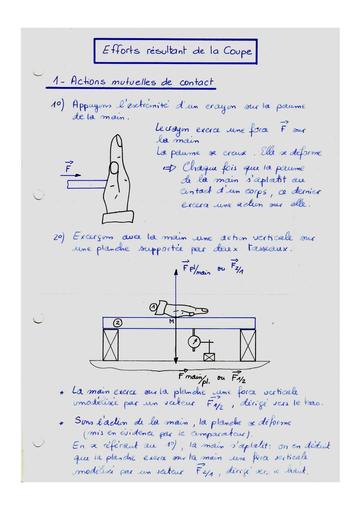 Efforts résultant de la Coupe
1 - Actions mutuelles de contact
1°) Appuyons l'extrémité d'un crayon sur la paume
de la main.
Le crayon exerce une force F sur
la main
La paume se creuse. Elle se déforme
⇨ Chaque fois que la paume
de la main s'aplatit au
contact d'un corps, ce dernier
exerce une action sur elle.
F
2°) Exerçons avec la main une action verticale sur
une planche supportée par deux tasseaux.
F pl/main ou F2/1
1
2
M
F main/pl. ou F1/2
• La main exerce sur la planche une force verticale
modélisée par un vecteur F1/2, dirigé vers le bas.
• Sous l'action de la main, la planche se déforme
(mis en évidence par le comparateur)
En se référant au 1°), la main s'aplatit : on en déduit
que la planche exerce sur la main une force verticale
modélisée par un vecteur F2/1, dirigé vers le haut.